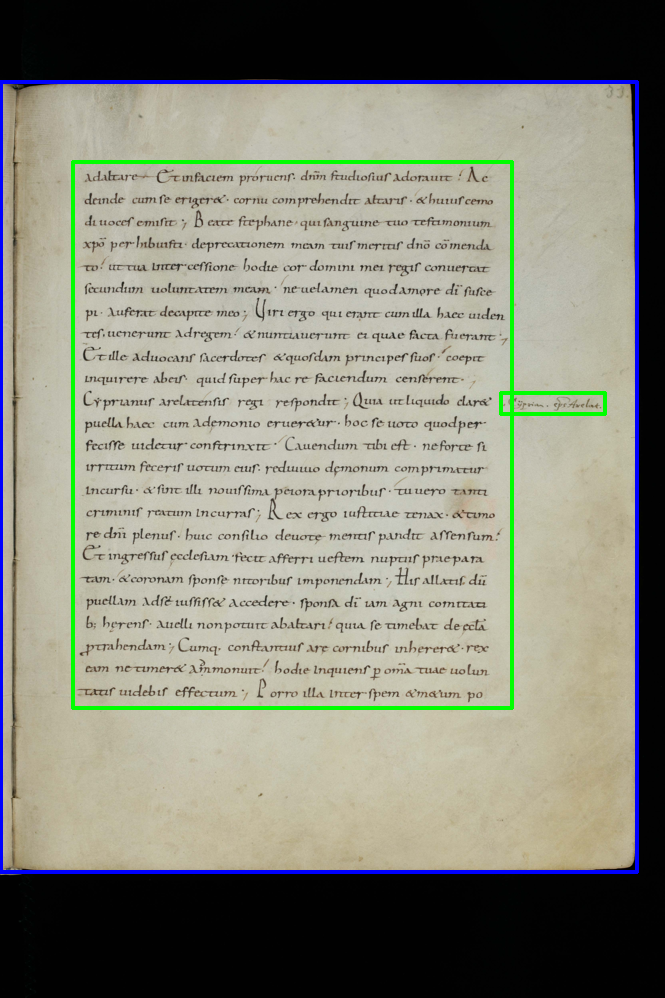 33.
adaltare Et infaciem proruens. dnm studiosius adorauit! Ac
deinde cum se erigeret. cornu comprehendit altaris. & huiuscemo
di uoces emisit; Beate stephane. qui sanguine tuo testimonium
xpo perhibuisti. deprecationem meam tuis meritis dno commenda
to! ut tua intercessione hodie cor domini mei regis conuertat
secundum voluntatem meam. ne uelamen quod amore di susce
pi. auferat decapite meo; Uiri ergo qui erant cum illa haec uiden
tes. uenerunt adregem! & nuntiauerunt ei quae facta fuerant;
Et ille aduocans sacerdotes & quosdam principes suos! coepit
inquirere abeis. quid super hac re faciendum censerent.
Cyprianus arelatensis regi respondit; Quia ut liquido claret
puella haec cum ademonio erueretur. hoc se uoto quod per
fecisse uidetur constrinxit. Cauendum tibi est. ne forte si
irritum feceris uotum eius. rediuiuo demonum comprimatur
incursu. & sint illi nouissima peiora prioribus. tu uero tanti
criminis reatum incurras; Rex ergo iustitiae tenax. & timo
re dni plenus. huic consilio deuote mentis pandit assensum!
Et ingressus ecclesiam fecit afferri uestem nuptiis praepara
tam. & coronam sponse nitoribus imponendam; His allatis. dū
puellam ad se iussisset accedere. sponsa di iam agni comitati
b; herens. auelli non potuit abaltari! quia se timebat de eccla
ptrahendam; Cumq. constantius are cornibus inhereret. rex
eam ne timeret ammonuit! hodie inquiens p oma tuae uolun
tatis uidebis effectum; Porro illa inter spem & metum po
Cyprian. eps Arelac.